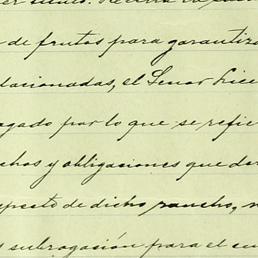 de frutos para garantizar
relacionadas, el Señor Lice
ogado por lo que se refie
chos y obligaciones que der
specto de dicho rancho,
subrogación para el